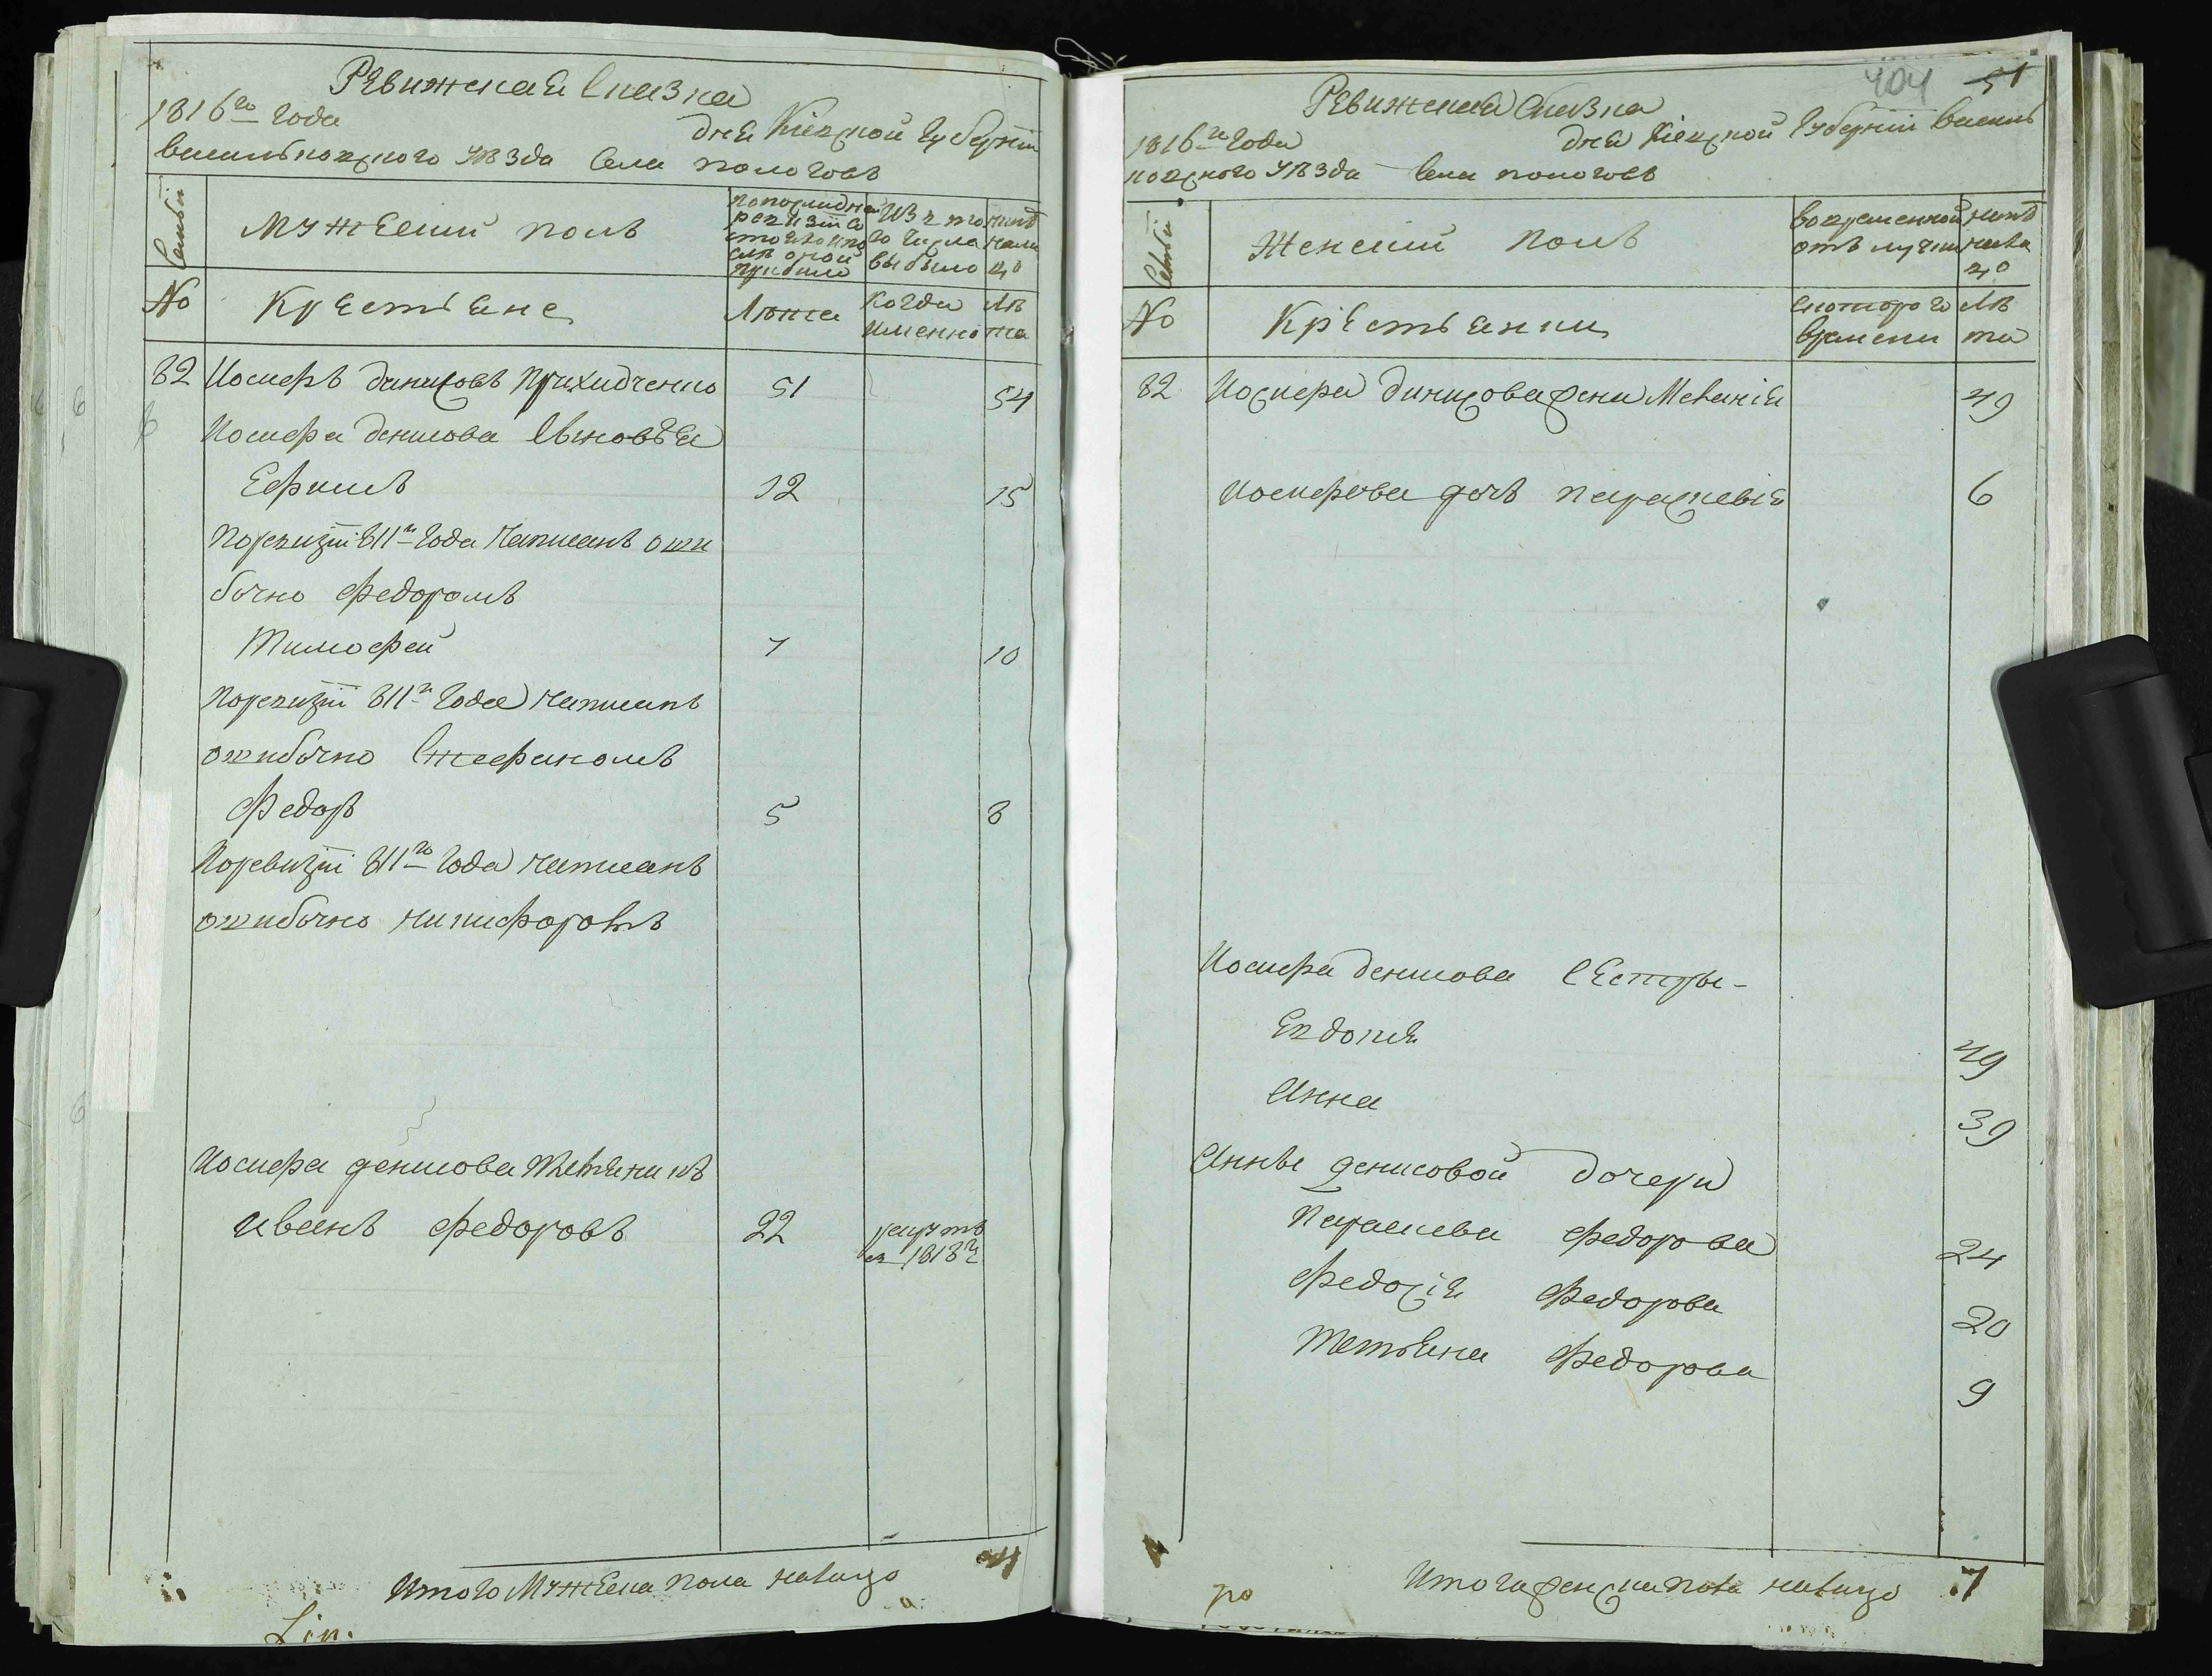 Ревижская Сказка
1816го года
дня Кіевской Губерніи
васильковского уѣзда села пологовъ
Семьи
Мужеский полъ
По последней ревизіи состояло и после оной прибыло
Изъ того числа выбыло
нынѣ налицо
№
Крестьяне
Лѣта
Когда именно
Лѣта
82 Иосифъ Денисовъ 51 54
Иосифа денисова сыновья
Ефимъ 12 15
По ревизіи 811го года написанъ оши
бочно Федоромъ
Тимофей 7 10
По ревизіи 811го года написанъ
ошибочно Стефаномъ
Федоръ 5 8
По ревизіи 811го года написанъ
ошибочно никифоромъ
Иосифа денисова племянникъ
Иванъ Федоровъ 22 рекрутъ въ 1813г
Итого Мужеска пола налицо 4
404 51
Ревижская Сказка
1816го года
дня Кіевской Губерніи василь
ковского уѣзда села пологовъ
Семьи
Женский полъ
во временной отлучки
нынѣ налицо
№
Крестьянки
с которого времени
Лѣта
82 Иосифа Денисова жена Меланія 49
Иосифова дочь параскевія 6
Иосифа денисова сестры
Евдокія 49
Анна 39
Анны денисовой дочери
Параскева Федорова 24
Федосія Федорова 20
Татьяна Федорова 9
ро
Итого женска пола налицо 7